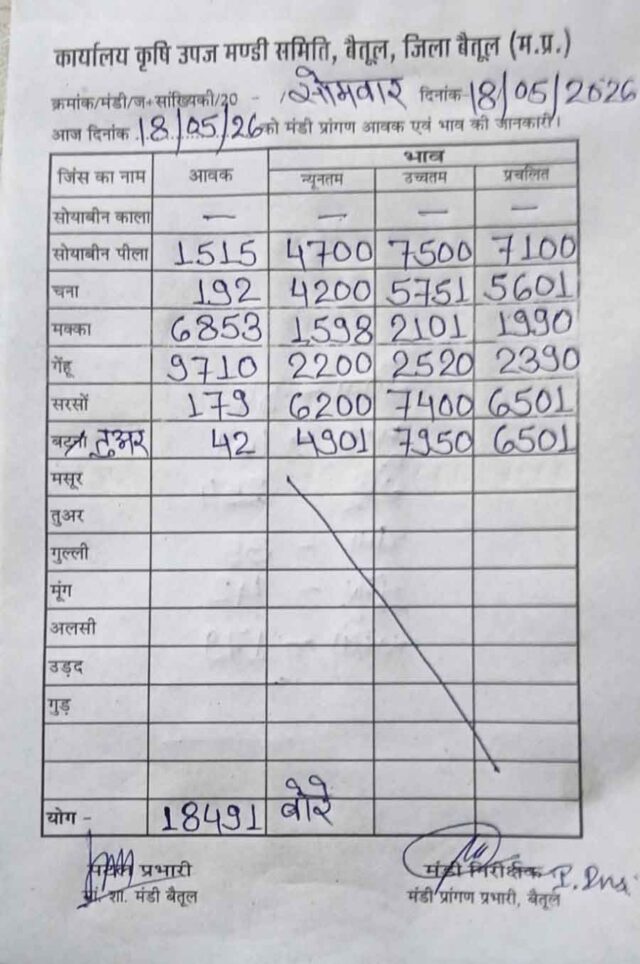 कार्यालय कृषि उपज मण्डी समिति, बैतूल, जिला बैतूल (म.प्र.)
क्रमांक/मंडी/ज+सांख्यिकी/20 - / सोमवार दिनांक 18/05/2026
आज दिनांक 18/05/26 को मंडी प्रांगण आवक एवं भाव की जानकारी।
जिंस का नाम आवक भाव
न्यूनतम उच्चतम प्रचलित
सोयाबीन काला — — — —
सोयाबीन पीला 1515 4700 7500 7100
चना 192 4200 5751 5601
मक्का 6853 1598 2101 1990
गेंहू 9710 2200 2520 2390
सरसों 179 6200 7400 6501
तुअर 42 4901 7950 6501
मसूर
तुअर
गुल्ली
मूंग
अलसी
उड़द
गुड़
योग - 18491 बोरे
प्रभारी मंडी निरीक्षक
शा. मंडी बैतूल मंडी प्रांगण प्रभारी, बैतूल